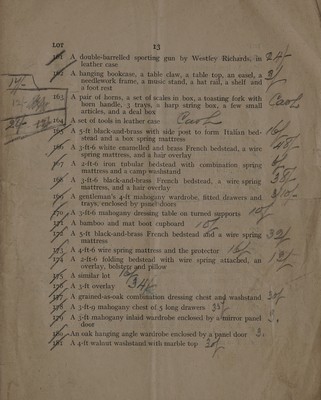 LOT 13
161 A double-barrelled sporting gun by Westley Richards, in 24/-
leather case
162 A hanging bookcase, a table claw, a table top, an easel, a 3/-
needlework frame, a music stand, a hat rail, a shelf and
a foot rest
163 A pair of horns, a set of scales in box, a toasting fork with
horn handle, 3 trays, a harp string box, a few small
articles, and a deal box
164 A set of tools in leather case
165 A 5-ft black-and-brass with side post to form Italian bed- 16/-
stead and a box spring mattress
166 A 3-ft-6 white enamelled and brass French bedstead, a wire
spring mattress, and a hair overlay
167 A 2-ft-6 iron tubular bedstead with combination spring
mattress and a camp washstand
168 A 3-ft-6 black-and-brass French bedstead, a wire spring
mattress, and a hair overlay
169 A gentleman's 4-ft mahogany wardrobe, fitted drawers and
trays, enclosed by panel doors
170 A 3-ft-6 mahogany dressing table on turned supports 10/-
171 A bamboo and mat boot cupboard 10/-
172 A 5-ft black-and-brass French bedstead and a wire spring 32/-
mattress
173 A 4-ft-6 wire spring mattress and the protector
174 A 2-ft-6 folding bedstead with wire spring attached, an 12/-
overlay, bolster and pillow
175 A similar lot
176 A 3-ft overlay 34/-
177 A grained-as-oak combination dressing chest and washstand 30/-
178 A 3-ft-9 mahogany chest of 5 long drawers 38/-
179 A 3-ft mahogany inlaid wardrobe enclosed by a mirror panel
door
180 An oak hanging angle wardrobe enclosed by a panel door
181 A 4-ft walnut washstand with marble top 30/-